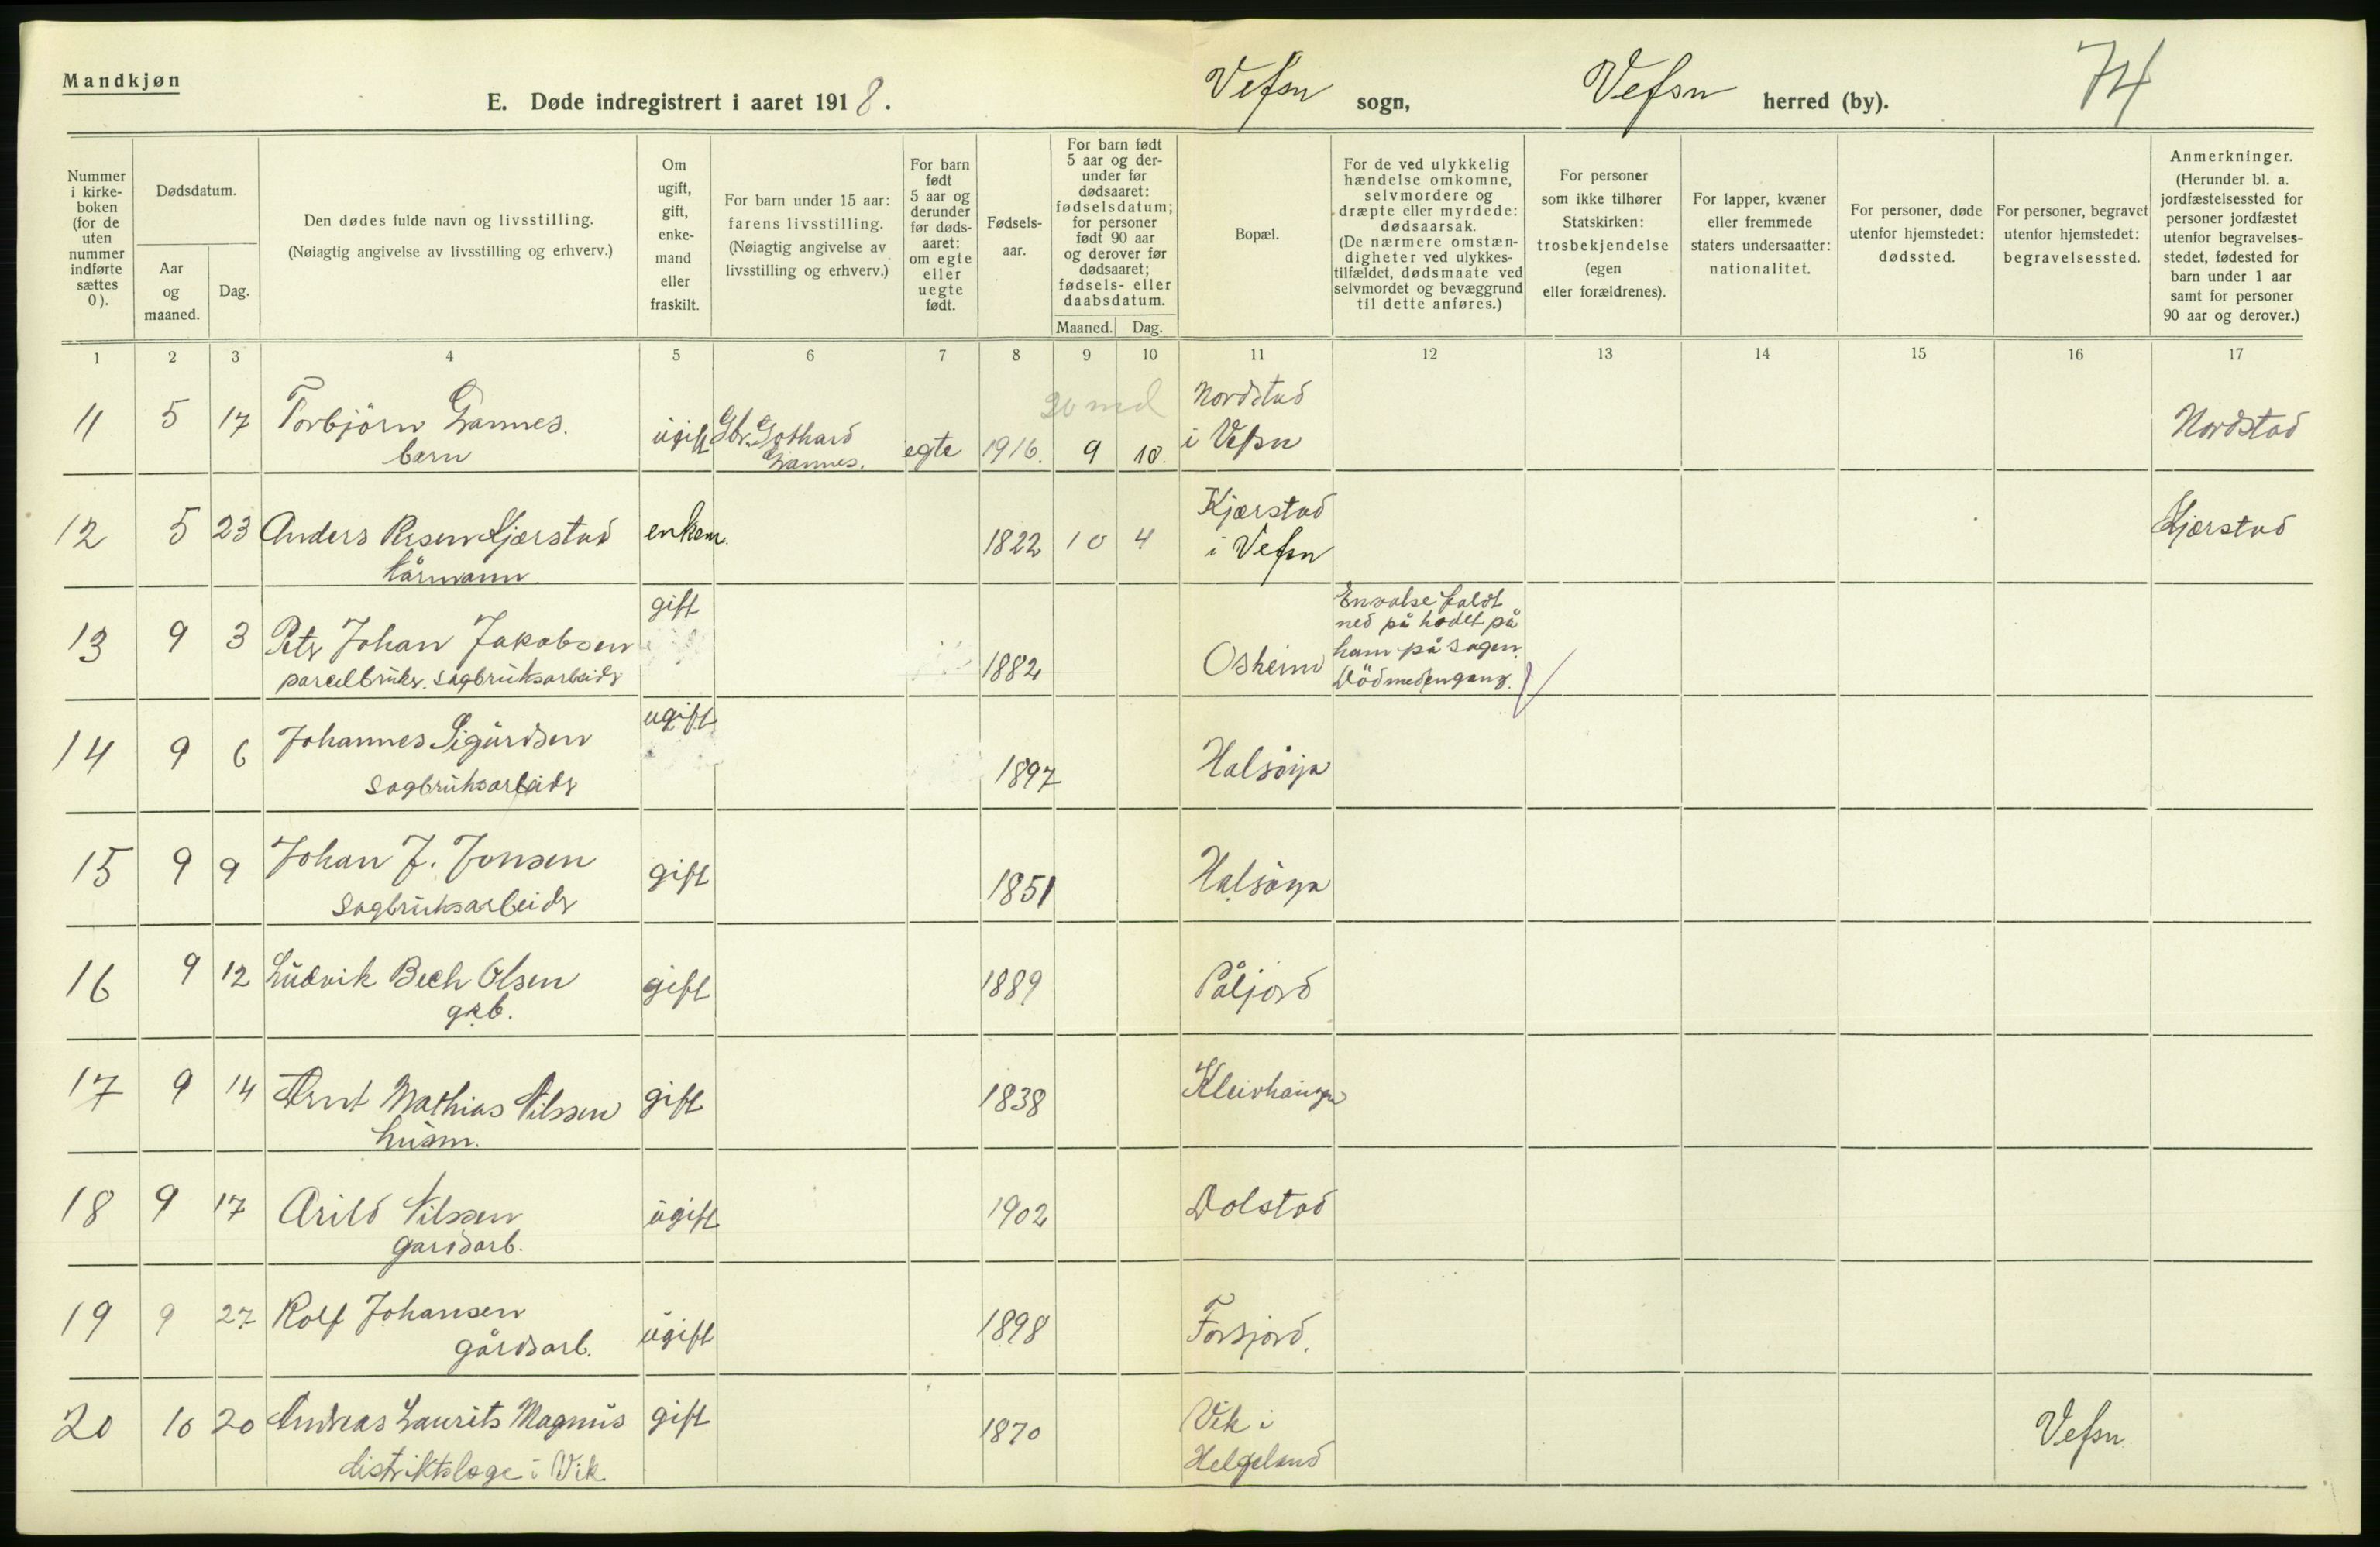 Mandkjøn
E. Døde indregistrert i aaret 1918.
Vefsn sogn, Vefsn herred (by). 74
Nummer i kirke- boken (for de uten nummer indførte sættes 0).
Dødsdatum.
Aar og maaned.
Dag.
Den dødes fulde navn og livsstilling.
(Nøiagtig angivelse av livsstilling og erhverv.)
Om ugift, gift, enke- mand eller fraskilt.
For barn under 15 aar: farens livsstilling. (Nøiagtig angivelse av livsstilling og erhverv.)
For barn født 5 aar og derunder før døds- aaret: om egte eller uegte født.
Fødsels- aar.
For barn født 5 aar og der- under før dødsaaret: fødselsdatum; for personer født 90 aar og derover før dødsaaret; fødsels- eller daabsdatum.
Maaned. Dag.
Bopæl.
For de ved ulykkelig hændelse omkomne, selvmordere og dræpte eller myrdede: dødsaarsak. (De nærmere omstæn- digheter ved ulykkes- tilfældet, dødsmaate ved selvmordet og bevæggrund til dette anføres.)
For personer som ikke tilhører Statskirken: trosbekjendelse (egen eller forældrenes).
For lapper, kvæner eller fremmede staters undersaatter: nationalitet.
For personer, døde utenfor hjemstedet: dødssted.
For personer, begravet utenfor hjemstedet: begravelsessted.
Anmerkninger. (Herunder bl. a. jordfæstelsessted for personer jordfæstet utenfor begravelses- stedet, fødested for barn under 1 aar samt for personer 90 aar og derover.)
1 2 3 4 5 6 7 8 9 10 11 12 13 14 15 16 17
11 5 17 Torbjörn Grannes. ugift Gbr. Gothard egte 1916. 9 10. Nordstad
barn Grannes. 20 md i Vefsn Nordstad
12 5 23 Anders Olsen Kjærstad enkem. 1822 10 4 Kjærstad Kjærstad
kårmann. i Vefsn
13 9 3 Petr Johan Jakobsen gift 1882 Osheim
parcelbruker. sagbruksarbeidr
En valse faldt
ned på hodet på
ham på sagen.
Död med engang.
14 9 6 Johannes Sigurdsen ugift 1897 Halsöya
sagbruksarbeidr
15 9 9 Johan J. Jonsen gift 1851 Halsöya
Sagbruksarbeidr
16 9 12 Ludvik Bech Olsen gift 1889 Påljord
gkb.
17 9 14 Arnt Mathias Nilssen gift 1838 Kleivhaugen
husm.
18 9 17 Arild Nilssen ugift 1902 Dolstad
gardsarb.
19 9 27 Rolf Johansen ugift 1898 Forsjord.
gårdsarb.
20 10 20 Andreas Laurits Magnus gift 1870 Vik i Vefsn
distriktslæge i Vik. Helgeland